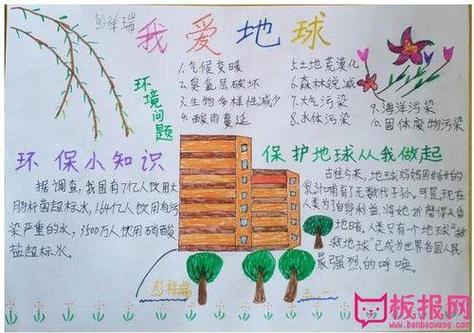 彭祥瑞
我爱地球
环境问题
1.气候变暖
2.臭氧层破坏
3.生物多样性减少
4.酸雨蔓延
5.土地荒漠化
6.森林锐减
7.大气污染
8.水体污染
9.海洋污染
10.固体废物污染
环保小知识
据调查,我国有7亿人饮用大
肠杆菌超标水,1.64亿人饮用有污
染严重的水,3500万人饮用硝酸
盐超标水。
保护地球从我做起
古往今来,地球妈妈用甘甜的
乳汁哺育了无数代子孙。可是,现在
人类为了自身利益,将她折磨得
人类只有一个地球"拯
救地球"已成为世界各国人民
最强烈的呼唤。
彭祥瑞
三、二
板报网
www.banbaowang.com